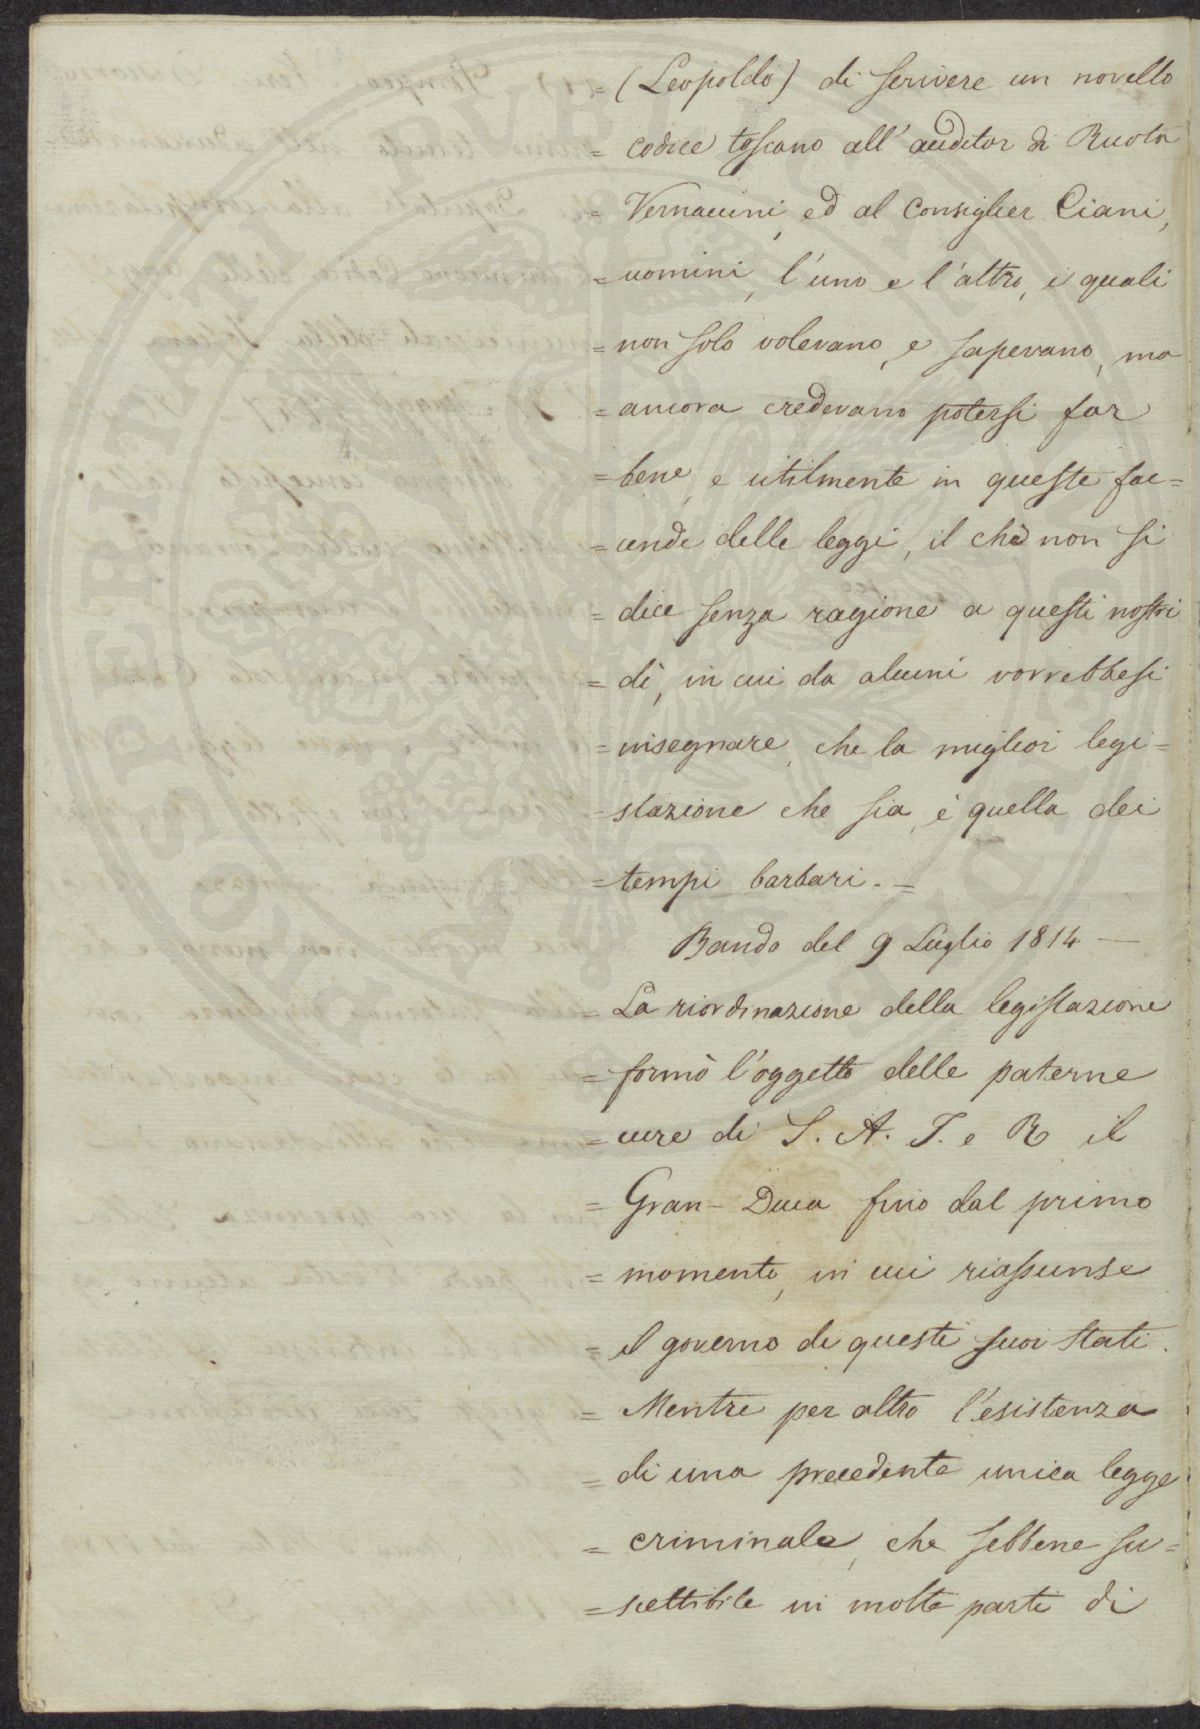 = (Leopoldo) di scrivere un novello
= codice toscano all'auditor di Ruota
= Vernaccini, ed al Consiglier Ciani,
= uomini, l'uno e l'altro, i quali
= non solo volevano, e sapevano, ma
= ancora credevano potersi far
= bene, e utilmente in queste fac=
= cende delle leggi, il chè non si
= dice senza ragione a questi nostri
= dì, in cui da alcuni vorrebbesi
= insegnare, che la miglior legi=
= slazione che sia, è quella dei
= tempi barbari. =
Bando del 9 Luglio 1814 —
= La riordinazione della legislazione
= formò l'oggetto delle paterne
= cure di S. A. I. e R il
= Gran-Duca fino dal primo
= momento, in cui riassunse
= il governo di questi suoi Stati.
= Mentre per altro l'esistenza
= di una precedente unica legge
= criminale, che sebbene su=
= scettibile in molte parti di